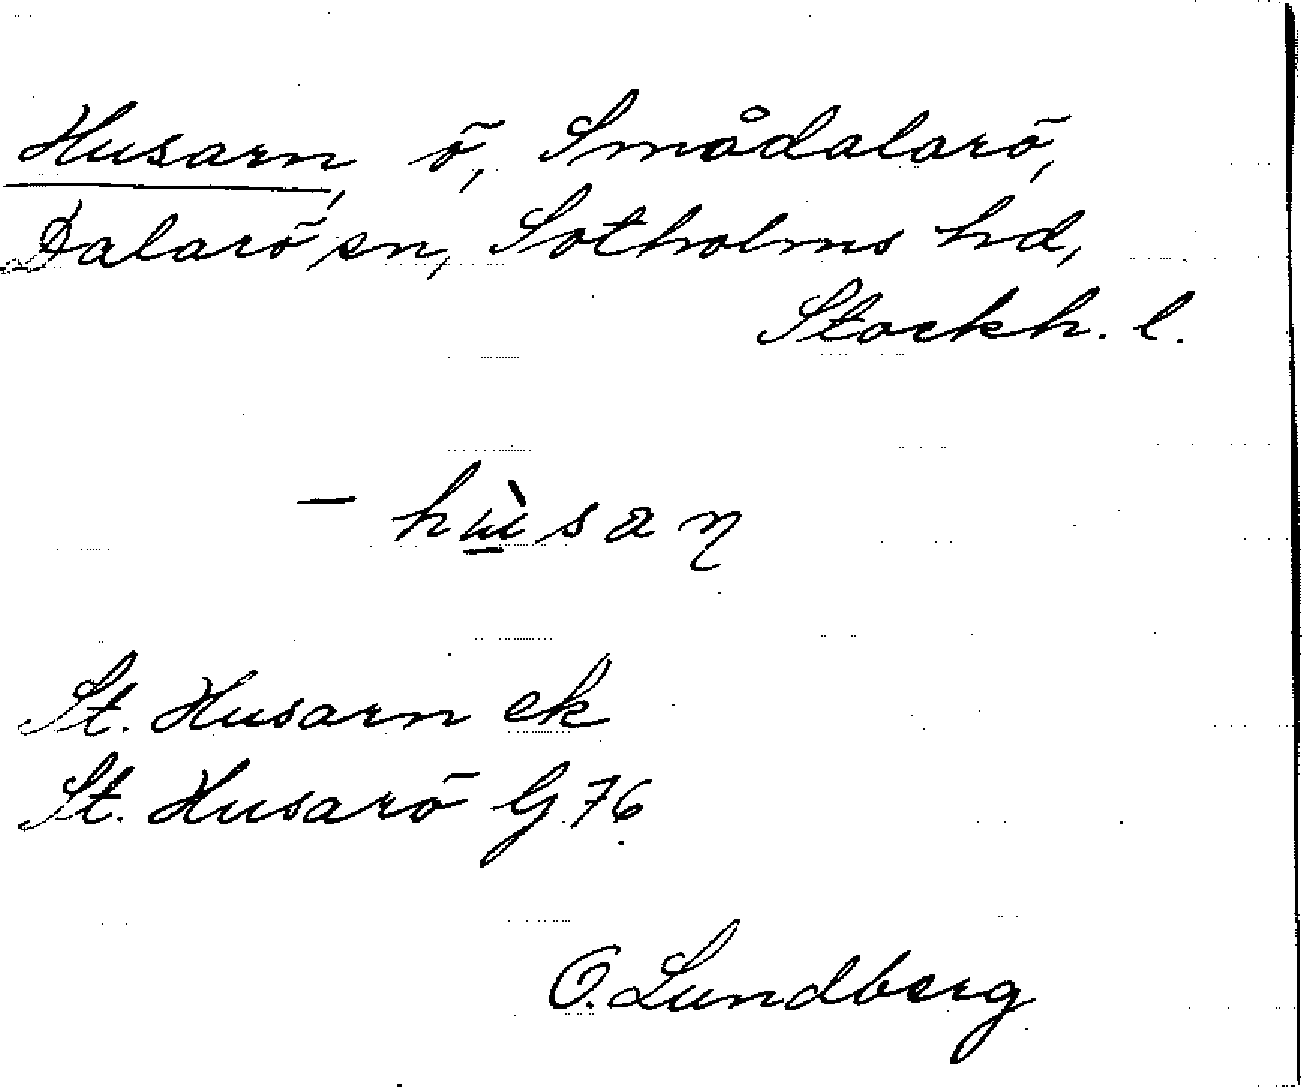 Husarn, ö, Smådalarö,
Dalarö sn, Sotholms hd,
Stockh. l.
– hù̲san
St. Husarn ek
St. Husarö G 76
O. Lundberg